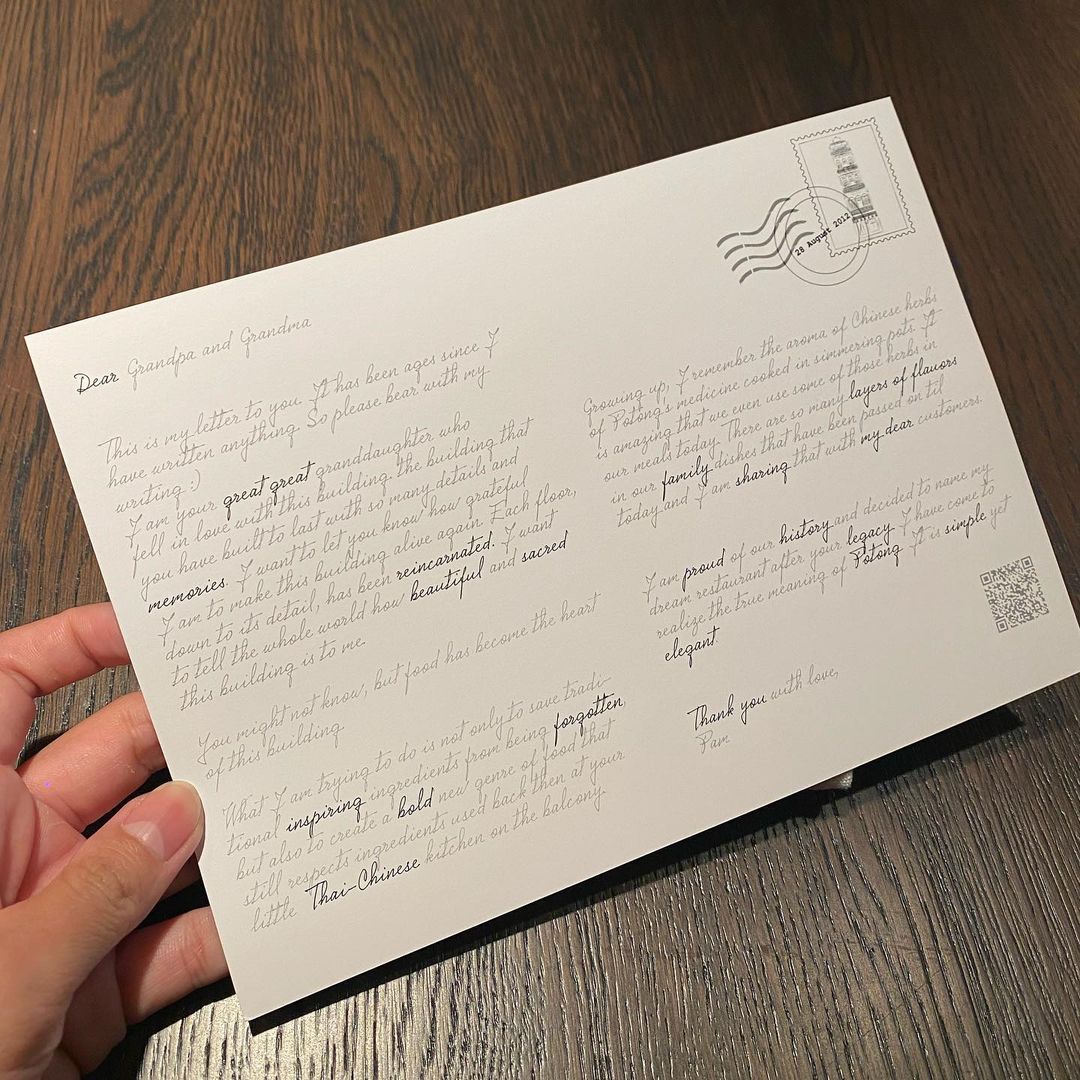 Dear Grandpa and Grandma
This is my letter to you. It has been ages since I
have written anything. So please bear with my
writing :)
I am your great great granddaughter who
fell in love with this building, the building that
you have built to last with so many details and
memories. I want to let you know how grateful
I am to make this building alive again. Each floor,
down to its detail, has been reincarnated. I want
to tell the whole world how beautiful and sacred
this building is to me
You might not know, but food has become the heart
of this building.
What I am trying to do is not only to save tradi-
tional inspiring ingredients from being forgotten,
but also to create a bold new genre of food that
still respects ingredients used back then at your
little Thai-Chinese kitchen on the balcony.
28 August 2012
Growing up, I remember the aroma of Chinese herbs
of Potong's medicine cooked in simmering pots. It
is amazing that we even use some of those herbs in
our meals today. There are so many layers of flavors
in our family dishes that have been passed on til
today and I am sharing that with my dear customers.
I am proud of our history and decided to name my
dream restaurant after your legacy. I have come to
realize the true meaning of Potong. It is simple yet
elegant
Thank you with love,
Pam